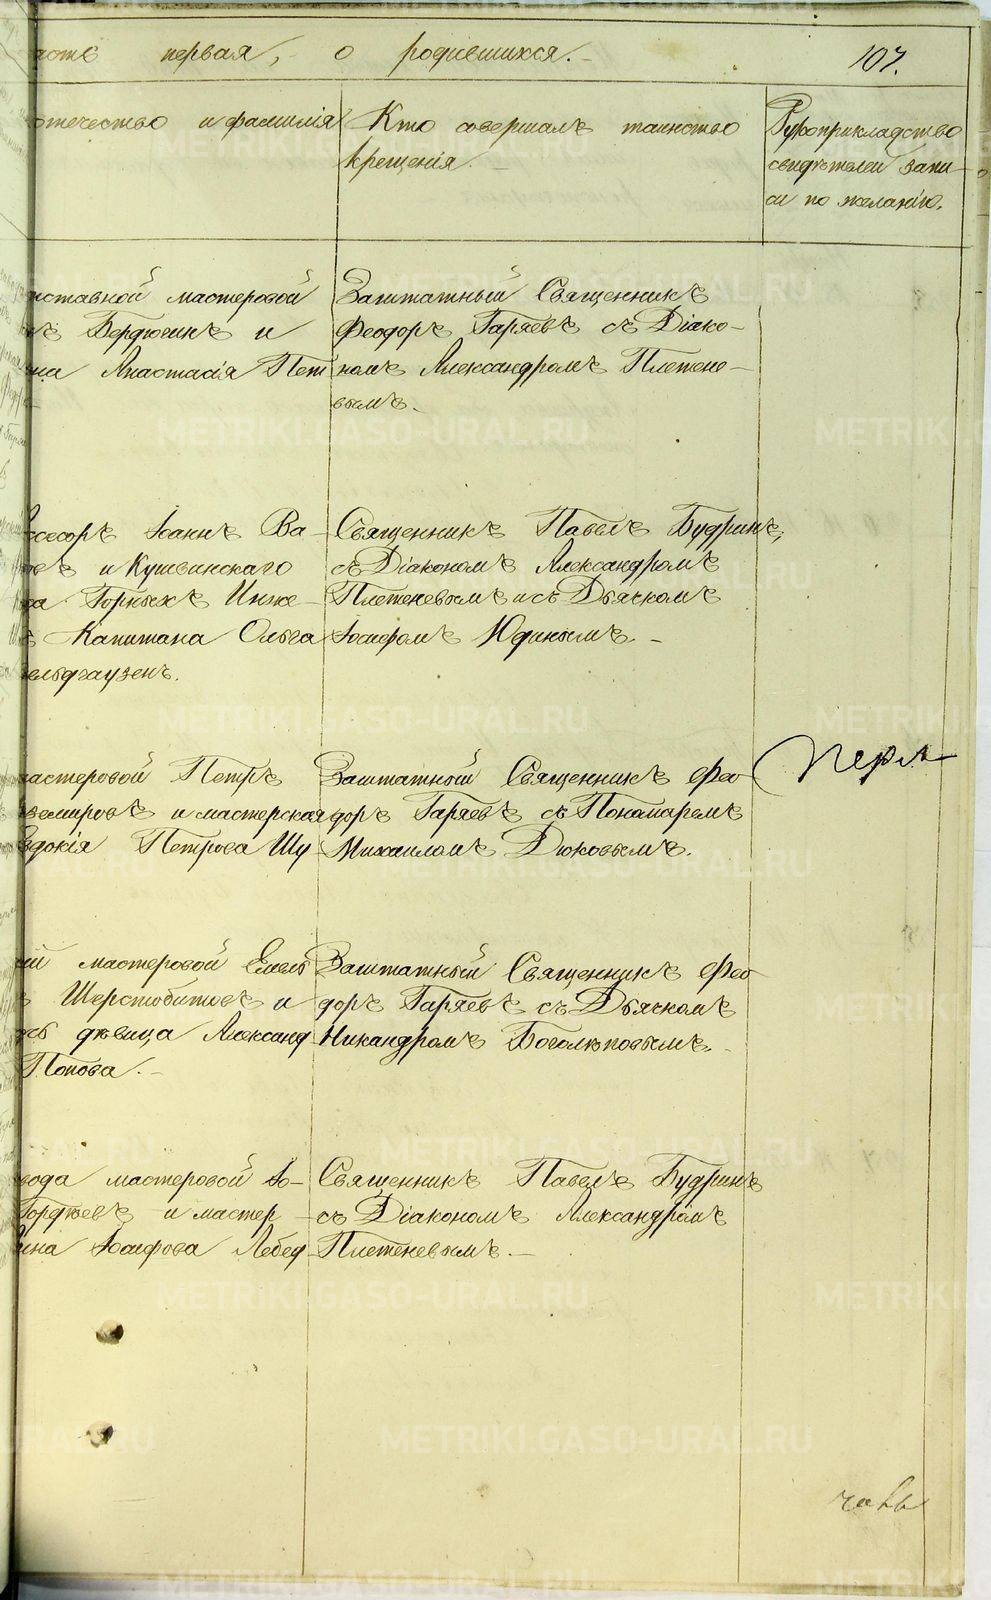 асть первая, о родившихся. 107.
отечество и фамилія
Кто совершалъ таинство
крещенія.
Рукоприкладство
свидѣтелей запи-
си по желанію.
отставной мастеровой
Бердюгинъ и
на Анастасія Пет
Заштатный Священникъ
Феодоръ Гаряевъ съ Діако-
номъ Александромъ Плетене-
вымъ.
ссесоръ Іоаннъ Ва-
и Кушвинскаго
Горныхъ Инже-
Капитана Ольга
ельдгаузенъ.
Священникъ Павелъ Будринъ,
съ Діакономъ Александромъ
Плетеневымъ и съ Дьячкомъ
Іосифомъ Юдинымъ.
мастеровой Петръ
и мастерская
вдокія Петрова Шу
Заштатный Священникъ Фео
доръ Гаряевъ съ Пономаремъ
Михаиломъ Дюковымъ.
ій мастеровой Емель
Шерстобитовъ и
дѣвица Александ
Попова.
Заштатный Священникъ Фео
доръ Гаряевъ съ Дьячкомъ
Никандромъ Боголѣповымъ.
вода мастеровой Іо-
Гордѣевъ и мастер
ина Іосифова Лебед
Священникъ Павелъ Будринъ
съ Діакономъ Александромъ
Плетеневымъ.
METRIKI.GASO-URAL.RU